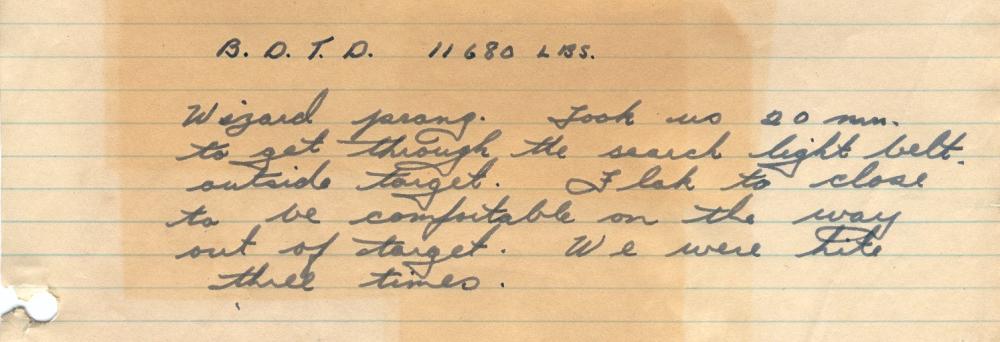 B. D. T. D. 11680 LBS.
Wizard prang. Took us 20 mn.
to get through the search light belt.
outside target. Flak to close
to be comfortable on the way
out of target. We were hite
three times.